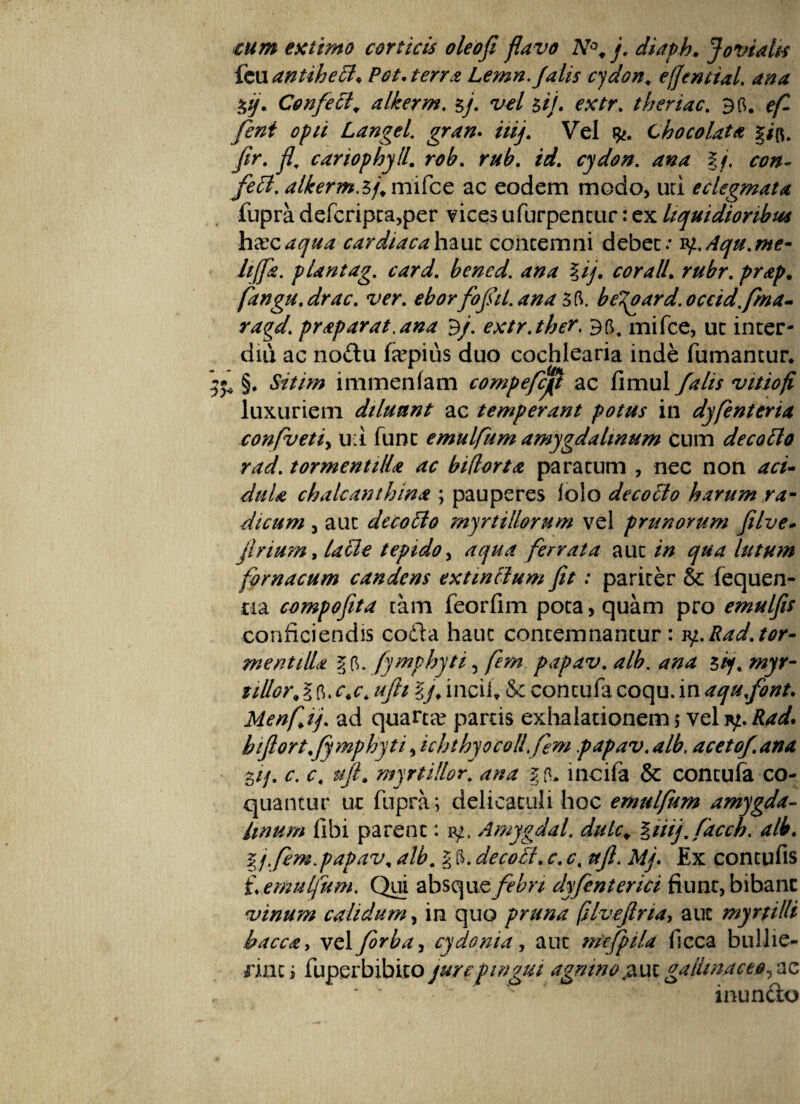 cum extimo corticis oleosi flavo N°. j. diaph. Jovialis
seu antihect. Pot. terræ Lemn. salis cydon. essential. ana
ʒij. Confect. alkerm. ʒj. vel ʒij. extr. theriac. ℈ß. es-
sent opii Langel. gran. iiij. Vel ℞. Chocolatæ ℥iß.
sir. fl. cariophyll. rob. rub. id. cydon. ana ℥j. con-
fect. alkerm. ʒj. misce ac eodem modo, uti eclegmata
suprà descripta, per vices usurpentur: ex liquidioribus
hæc aqua cardiaca haut contemni debet: ℞. Aqu. me-
lissæ. plantag. card. bened. ana ℥ij. corall. rubr. præp.
sangu. drac. ver. ebor fossil. ana ʒß. bezoard. occid. sma-
ragd. præparat. ana ℈j. extr. ther. ℈ß. misce, ut inter-
diù ac noctu sæpiùs duo cochlearia indè sumantur.
35. §. Sitim immensam compescit ac simul salis vitiosi
luxuriem diluunt ac temperant potus in dysenteria
consveti, uti sunt emulsum amygdalinum cum decocto
rad. tormentillæ ac bistortæ paratum , nec non aci-
dulæ chalcanthinæ ; pauperes solo decocto harum ra-
dicum , aut decocto myrtillorum vel prunorum silve-
strium, lacte tepido, aqua ferrata aut in qua lutum
fornacum candens extinctum sit : paritèr & sequen-
tia composita tàm seorsim pota, quàm pro emulsis
conficiendis cocta haut contemnantur: ℞. Rad. tor-
mentillæ ℥ß. symphyti, sem. papav. alb. ana ʒij. myr-
tillor. ℥ß. c. c. usti ℥j. incis. & contusa coqu. in aqu. font.
Mens. ij. ad quartæ partis exhalationem; vel ℞. Rad.
bistort. symphyti, ichthyocoll. sem. papav. alb. acetos. ana
ʒij. c. c. ust. myrtillor. ana ℥ß. incisa & contusa co-
quantur ut suprà; delicatuli hoc emulsum amygda-
linum sibi parent: ℞. Amygdal. dulc. ℥iiij. sacch. alb.
℥j. sem. papav. alb. ℥ß. decoct. c. c. ust. Mj. Ex contusis
f. emulsum. Qui absque febri dysenterici fiunt, bibant
vinum calidum, in quo pruna silvestria, aut myrtilli
baccæ, vel sorba, cydonia, aut mespila sicca bullie-
rint; superbibito jure pingui agnino aut gallinaceo, ac
inuncto